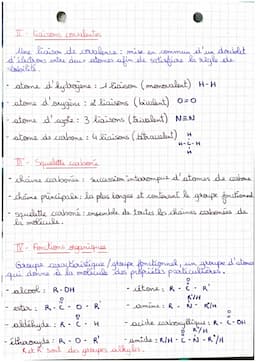 II - Liaisons covalentes
Une liaison de covalence : mise en commun d'un doublet
d'électrons entre deux atomes afin de satisfaire la règle de
stabilité.
- atome d'hydrogène : 1 liaison (monovalent) H-H
- atome d'oxygène : 2 liaisons (bivalent) O=O
- atome d'azote : 3 liaisons (trivalent) N≡N
- atome de carbone : 4 liaisons (tétravalent) H-C-H
III - Squelette carboné
- chaîne carbonée : succession ininterrompue d'atomes de carbone
- chaîne principale : la plus longue et contenant le groupe fonctionnel
- squelette carboné : ensemble de toutes les chaînes carbonées de
la molécule.
IV - Fonctions organiques
Groupe caractéristique / groupe fonctionnel, un groupe d'atomes
qui donne à la molécule des propriétés particulières.
- alcool : R-OH - cétone : R-C-R'
- ester : R-C-O-R' - amine : R-N-R'/H
- aldéhyde : R-C-H - acide carboxylique : R-C-OH
- étheroxyde : R-O-R' - amide : R/H-C-N-R'/H
R et R' sont des groupes alkyles.